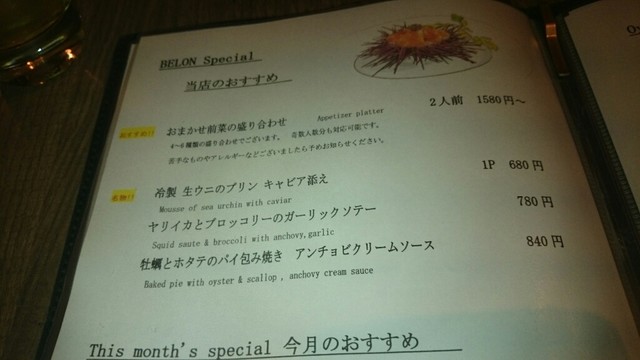 BELON Special
当店のおすすめ
おすすめ!! おまかせ前菜の盛り合わせ Appetizer platter 2人前 1580円～
4～6種類の盛り合わせでございます。 奇数人数分も対応可能です。
苦手なものやアレルギーなどございましたら予めお知らせください。
名物!! 冷製 生ウニのプリン キャビア添え 1P 680円
Mousse of sea urchin with caviar
ヤリイカとブロッコリーのガーリックソテー 780円
Squid saute & broccoli with anchovy,garlic
牡蠣とホタテのパイ包み焼き アンチョビクリームソース 840円
Baked pie with oyster & scallop , anchovy cream sauce
This month's special 今月のおすすめ